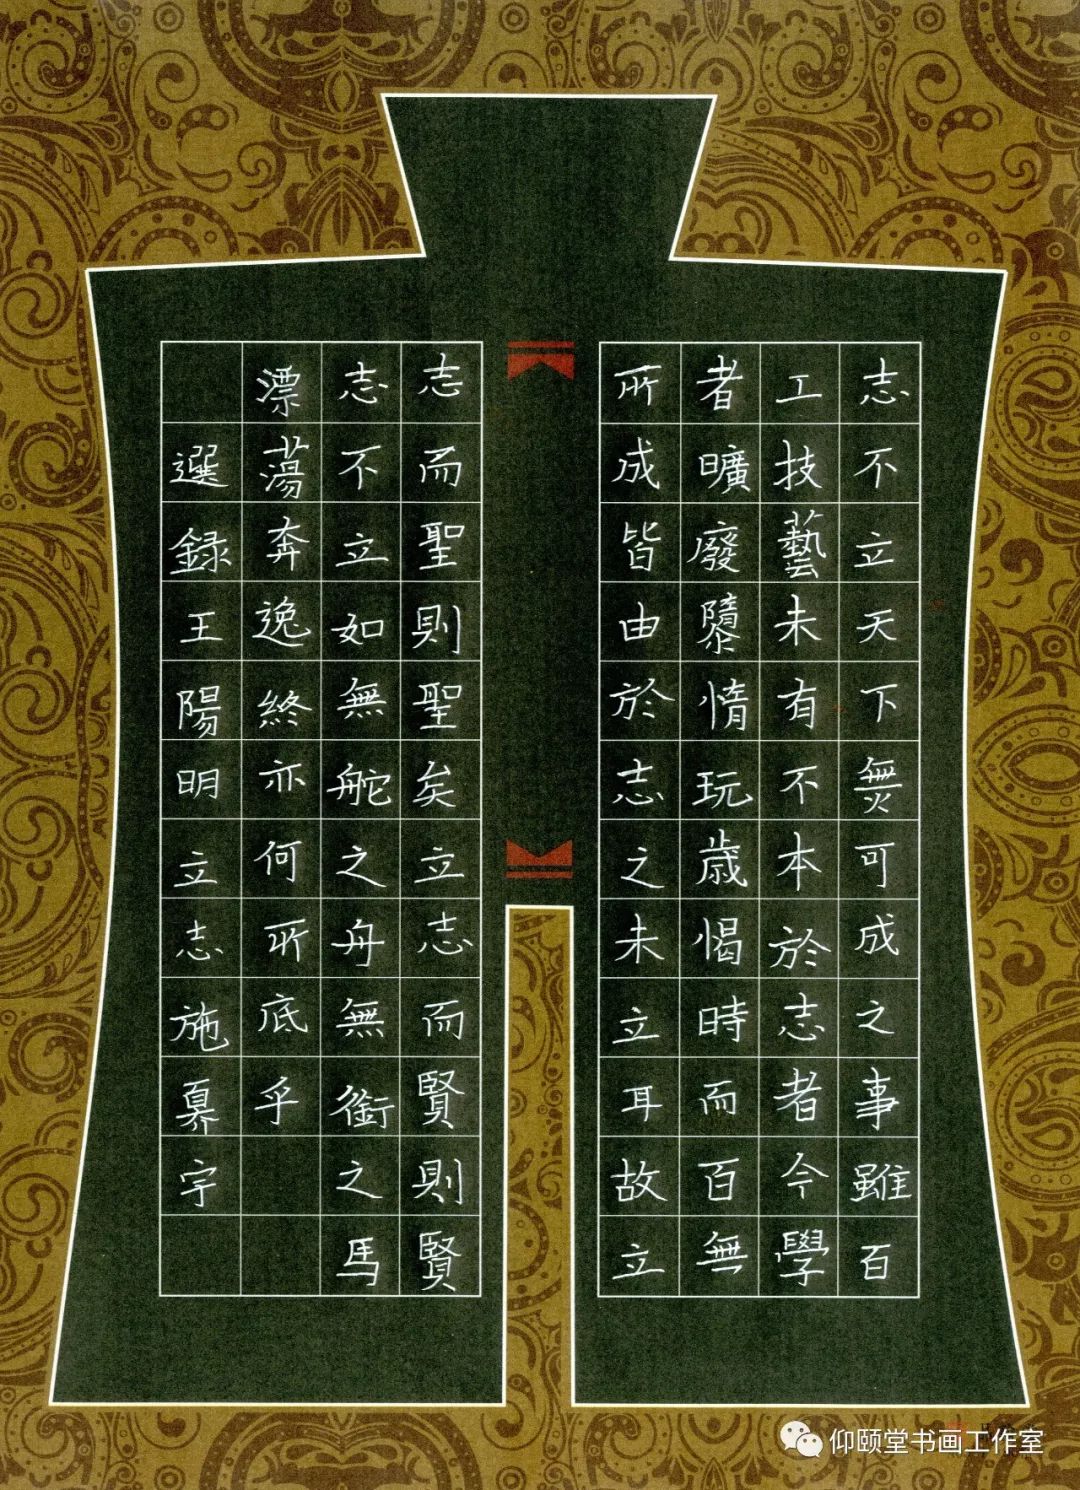 志不立天下無可成之事雖百
工技藝未有不本於志者今學
者曠廢隳惰玩歲愒時而百無
所成皆由於志之未立耳故立
志而聖則聖矣立志而賢則賢
志不立如無舵之舟無銜之馬
漂蕩奔逸終亦何所底乎
選録王陽明立志施宇
仰颐堂书画工作室